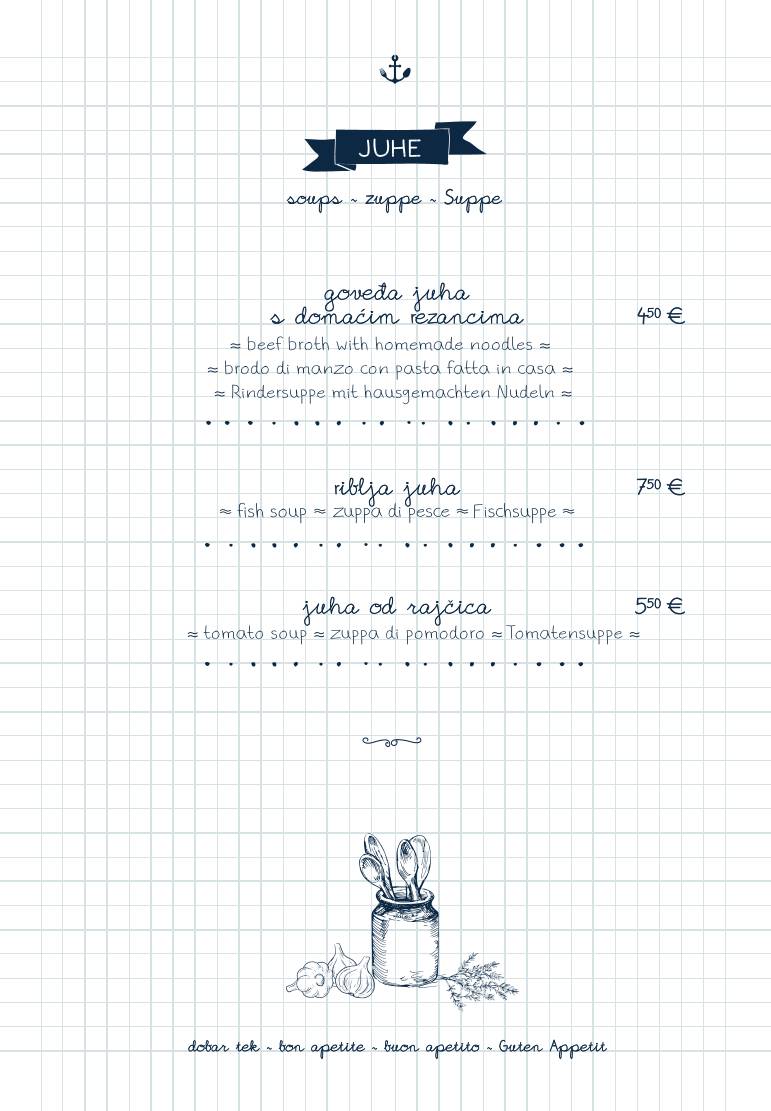 JUHE
soups ~ zuppe ~ Suppe
goveđa juha
s domaćim rezancima 4⁵⁰ €
≈ beef broth with homemade noodles ≈
≈ brodo di manzo con pasta fatta in casa ≈
≈ Rindersuppe mit hausgemachten Nudeln ≈
riblja juha 7⁵⁰ €
≈ fish soup ≈ zuppa di pesce ≈ Fischsuppe ≈
juha od rajčica 5⁵⁰ €
≈ tomato soup ≈ zuppa di pomodoro ≈ Tomatensuppe ≈
dobar tek ~ bon apetite ~ buon apetito ~ Guten Appetit